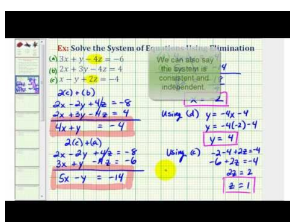 Ex: Solve the System of Equations Using Elimination
(a) 3x + y - 4z = -6
(b) 2x + 3y - 4z = 4
(c) x - y + 2z = -4
We can also say
the system is
consistent and
independent.
2(c) + (b)
2x - 2y + 4z = -8
2x + 3y - 4z = 4
4x + y = -4
2(c) + (a)
2x - 2y + 4z = -8
3x + y - 4z = -6
5x - y = -14
Using (d) y = -4x - 4
y = -4(-2) - 4
y = 4
Using (c) -2 - 4 + 2z = -4
-6 + 2z = -4
2z = 2
z = 1